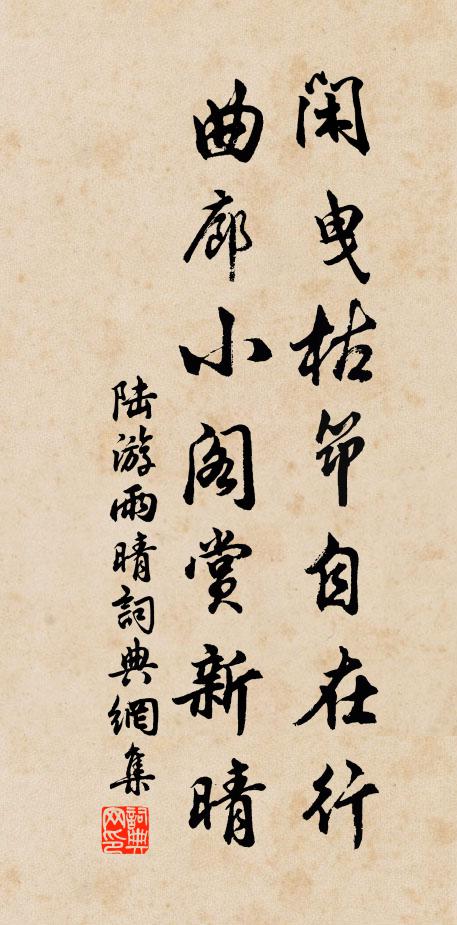 闲曳枯筇自在行
曲廊小阁赏新晴
陆游雨晴詞典網集
詞典网印